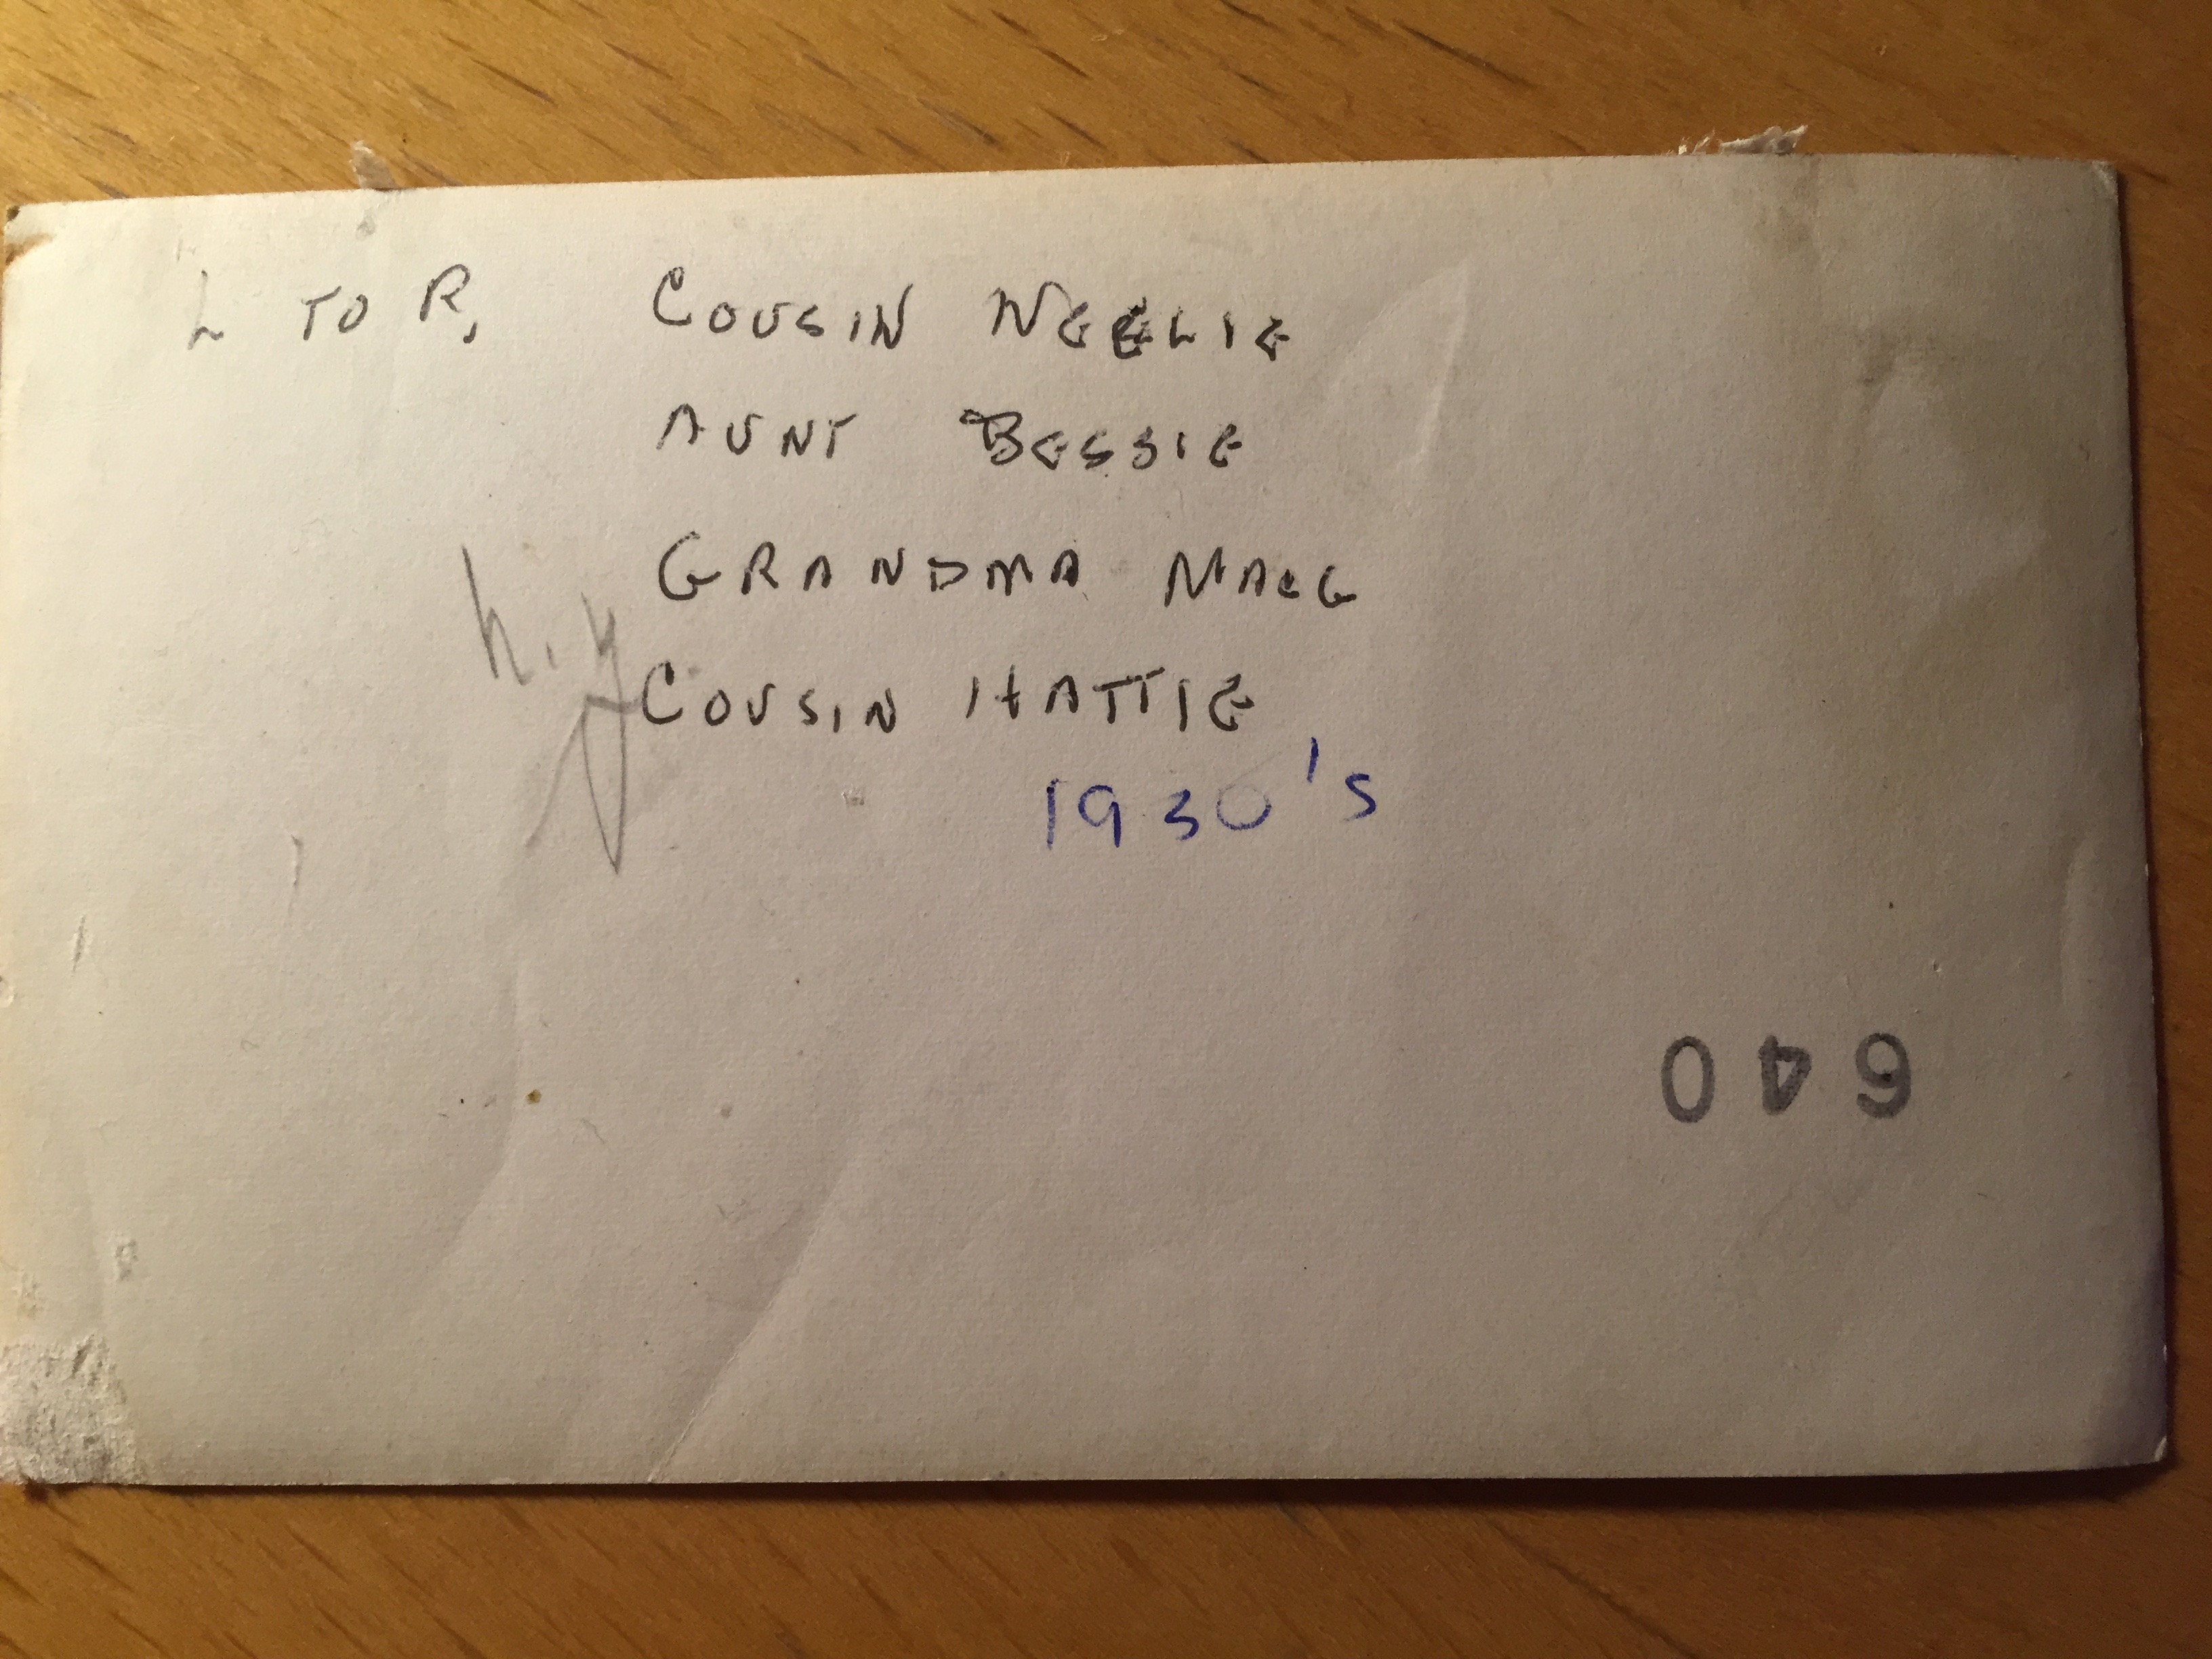 L TO R, COUSIN NEELIE
AUNT BESSIE
GRANDMA
n.y
COUSIN HATTIE
1930's
640